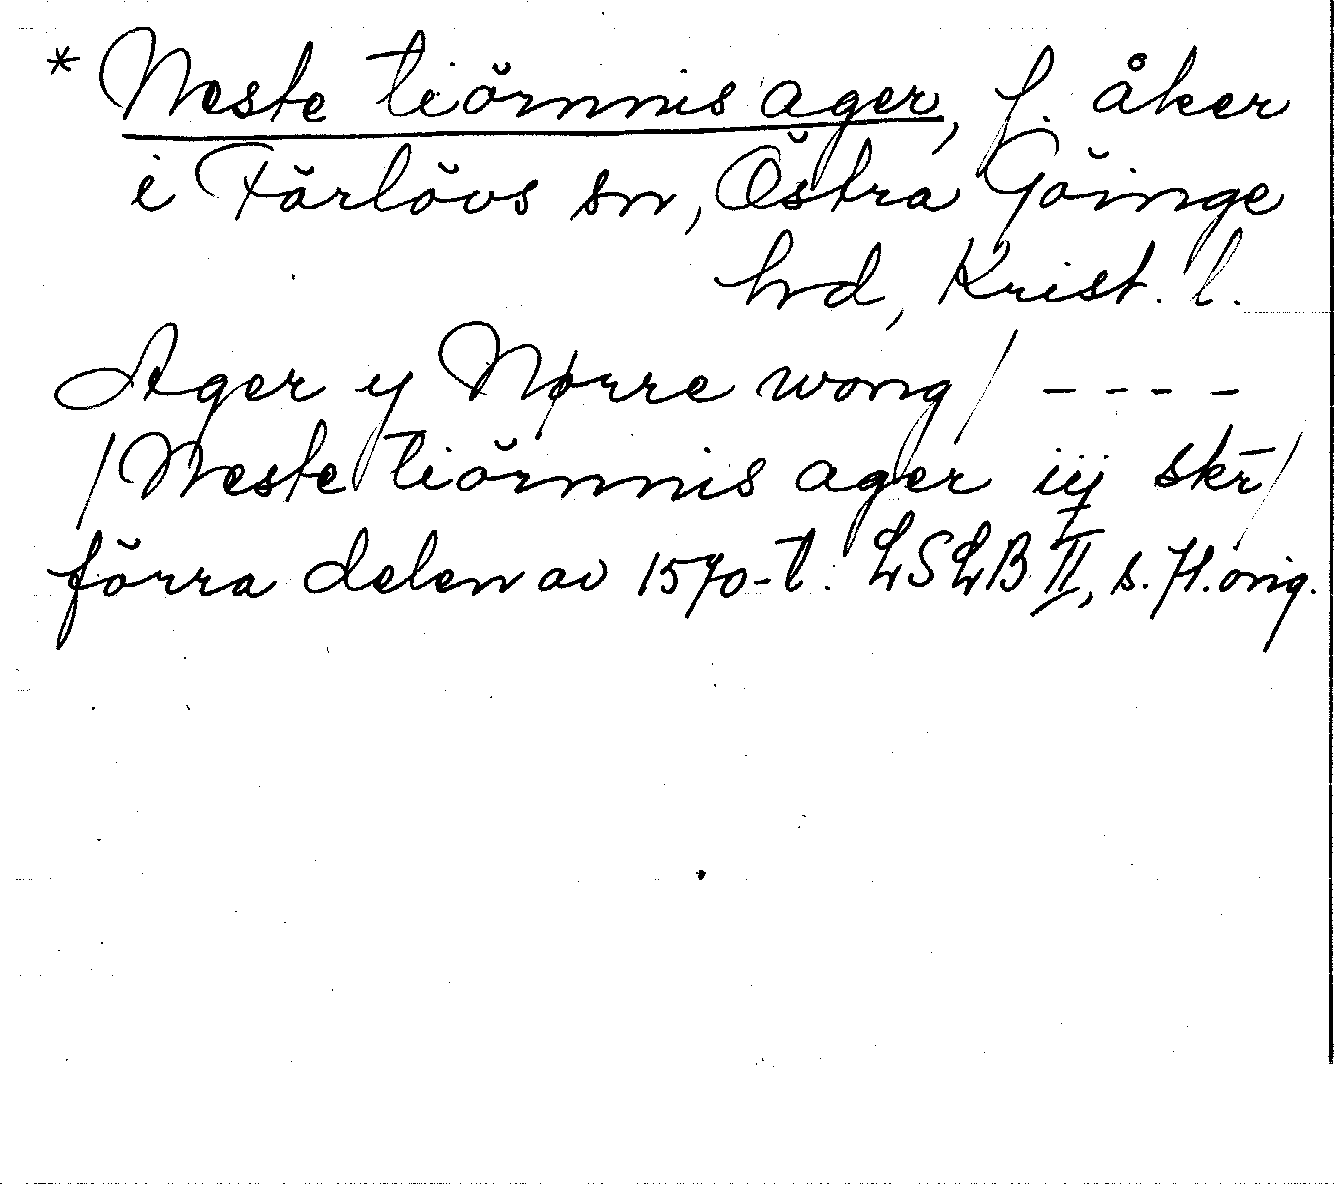 * Neste tiörnnis ager, f. åker
i Färlövs sn, Östra Göinge
hrd, Krist. l.
Ager y Nørre wong/ ----
/Neste tiörnnis ager iij skr̄/
förra delen av 1570-t. LSLB II, s. 71. orig.